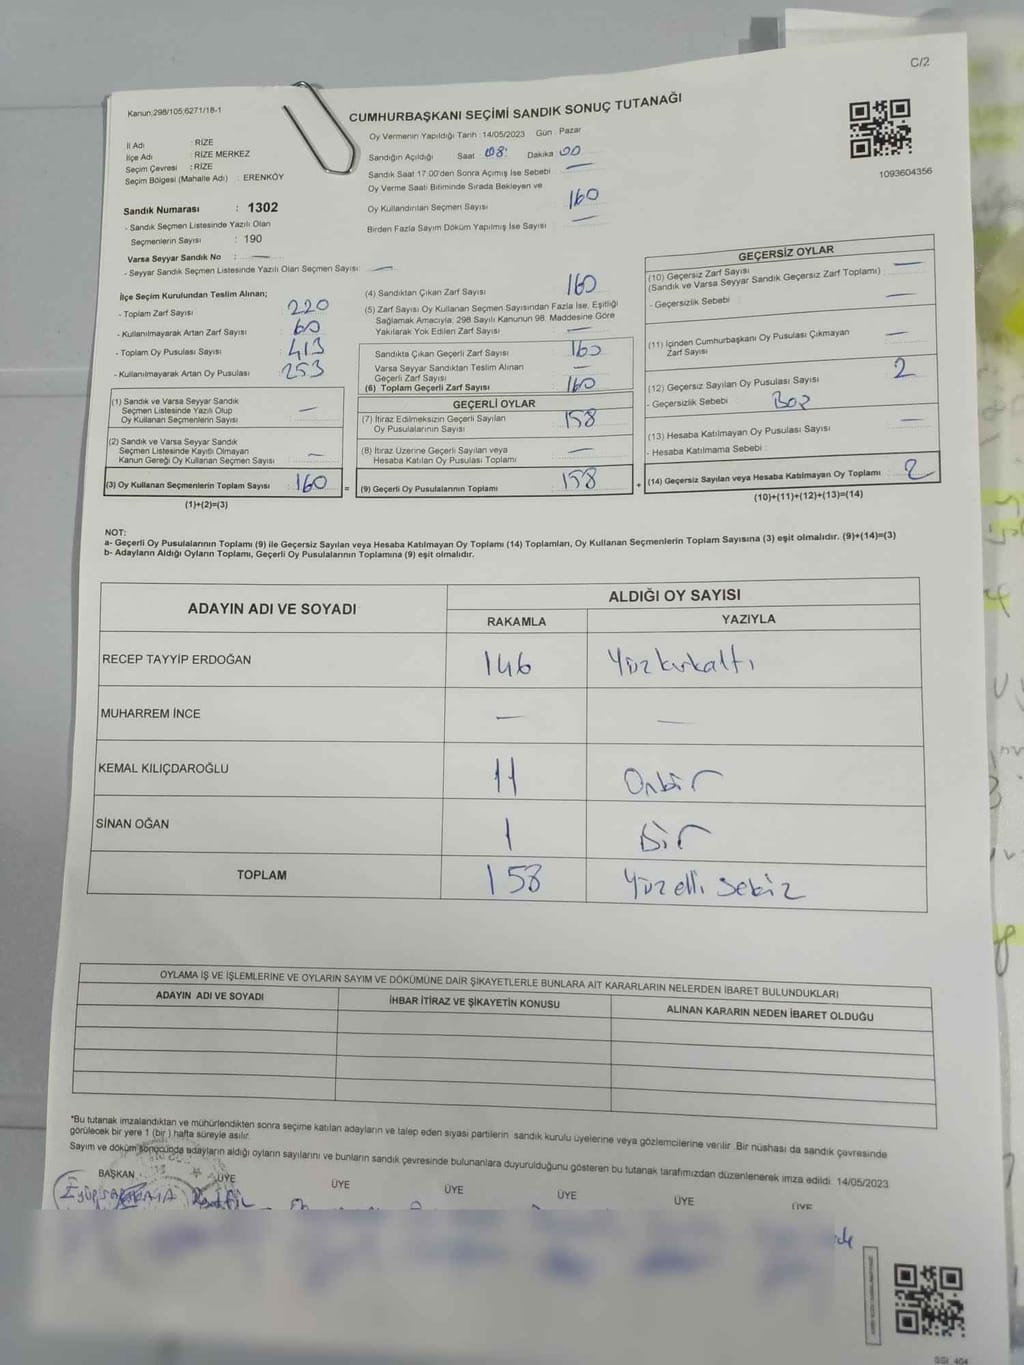 C/2
Kanun:298/105;6271/18-1
CUMHURBAŞKANI SEÇİMİ SANDIK SONUÇ TUTANAĞI
İl Adı : RİZE
İlçe Adı : RİZE MERKEZ
Seçim Çevresi : RİZE
Seçim Bölgesi (Mahalle Adı) : ERENKÖY
Sandık Numarası : 1302
- Sandık Seçmen Listesinde Yazılı Olan
Seçmenlerin Sayısı : 190
Varsa Seyyar Sandık No : —
- Seyyar Sandık Seçmen Listesinde Yazılı Olan Seçmen Sayısı : —
Oy Vermenin Yapıldığı Tarih : 14/05/2023 Gün : Pazar
Sandığın Açıldığı Saat 08: Dakika : 00
Sandık Saat 17:00'den Sonra Açılmış İse Sebebi : —
Oy Verme Saati Bitiminde Sırada Bekleyen ve
Oy Kullandırılan Seçmen Sayısı 160
Birden Fazla Sayım Döküm Yapılmış İse Sayısı : —
1093604356
İlçe Seçim Kurulundan Teslim Alınan;
- Toplam Zarf Sayısı : 220
- Kullanılmayarak Artan Zarf Sayısı : 60
- Toplam Oy Pusulası Sayısı : 413
- Kullanılmayarak Artan Oy Pusulası : 253
(1) Sandık ve Varsa Seyyar Sandık
Seçmen Listesinde Yazılı Olup
Oy Kullanan Seçmenlerin Sayısı : —
(2) Sandık ve Varsa Seyyar Sandık
Seçmen Listesinde Kayıtlı Olmayan
Kanun Gereği Oy Kullanan Seçmen Sayısı : —
(3) Oy Kullanan Seçmenlerin Toplam Sayısı : 160 =
(1)+(2)=(3)
(4) Sandıktan Çıkan Zarf Sayısı : 160
(5) Zarf Sayısı Oy Kullanan Seçmen Sayısından Fazla İse, Eşitliği
Sağlamak Amacıyla, 298 Sayılı Kanunun 98. Maddesine Göre
Yakılarak Yok Edilen Zarf Sayısı : —
Sandıkta Çıkan Geçerli Zarf Sayısı : 160
Varsa Seyyar Sandıktan Teslim Alınan
Geçerli Zarf Sayısı : —
(6) Toplam Geçerli Zarf Sayısı : 160
GEÇERLİ OYLAR
(7) İtiraz Edilmeksizin Geçerli Sayılan
Oy Pusulalarının Sayısı : 158
(8) İtiraz Üzerine Geçerli Sayılan veya
Hesaba Katılan Oy Pusulası Toplamı : —
(9) Geçerli Oy Pusulalarının Toplamı : 158 +
GEÇERSİZ OYLAR
(10) Geçersiz Zarf Sayısı : —
(Sandık ve Varsa Seyyar Sandık Geçersiz Zarf Toplamı)
- Geçersizlik Sebebi : —
(11) İçinden Cumhurbaşkanı Oy Pusulası Çıkmayan
Zarf Sayısı : —
(12) Geçersiz Sayılan Oy Pusulası Sayısı : 2
- Geçersizlik Sebebi : Boş
(13) Hesaba Katılmayan Oy Pusulası Sayısı : —
- Hesaba Katılmama Sebebi :
(14) Geçersiz Sayılan veya Hesaba Katılmayan Oy Toplamı : 2
(10)+(11)+(12)+(13)=(14)
NOT:
a- Geçerli Oy Pusulalarının Toplamı (9) ile Geçersiz Sayılan veya Hesaba Katılmayan Oy Toplamı (14) Toplamları, Oy Kullanan Seçmenlerin Toplam Sayısına (3) eşit olmalıdır. (9)+(14)=(3)
b- Adayların Aldığı Oyların Toplamı, Geçerli Oy Pusulalarının Toplamına (9) eşit olmalıdır.
ADAYIN ADI VE SOYADI
ALDIĞI OY SAYISI
RAKAMLA YAZIYLA
RECEP TAYYİP ERDOĞAN 146 Yüzkırkaltı
MUHARREM İNCE — —
KEMAL KILIÇDAROĞLU 11 Onbir
SİNAN OĞAN 1 Bir
TOPLAM 158 Yüzelli sekiz
OYLAMA İŞ VE İŞLEMLERİNE VE OYLARIN SAYIM VE DÖKÜMÜNE DAİR ŞİKAYETLERLE BUNLARA AİT KARARLARIN NELERDEN İBARET BULUNDUKLARI
ADAYIN ADI VE SOYADI İHBAR İTİRAZ VE ŞİKAYETİN KONUSU ALINAN KARARIN NEDEN İBARET OLDUĞU
*Bu tutanak imzalandıktan ve mühürlendikten sonra seçime katılan adayların ve talep eden siyasi partilerin sandık kurulu üyelerine veya gözlemcilerine verilir. Bir nüshası da sandık çevresinde
görülecek bir yere 1 (bir) hafta süreyle asılır.
Sayım ve döküm sonucunda adayların aldığı oyların sayılarını ve bunların sandık çevresinde bulunanlara duyurulduğunu gösteren bu tutanak tarafımızdan düzenlenerek imza edildi. 14/05/2023
BAŞKAN ÜYE ÜYE ÜYE ÜYE ÜYE ÜYE